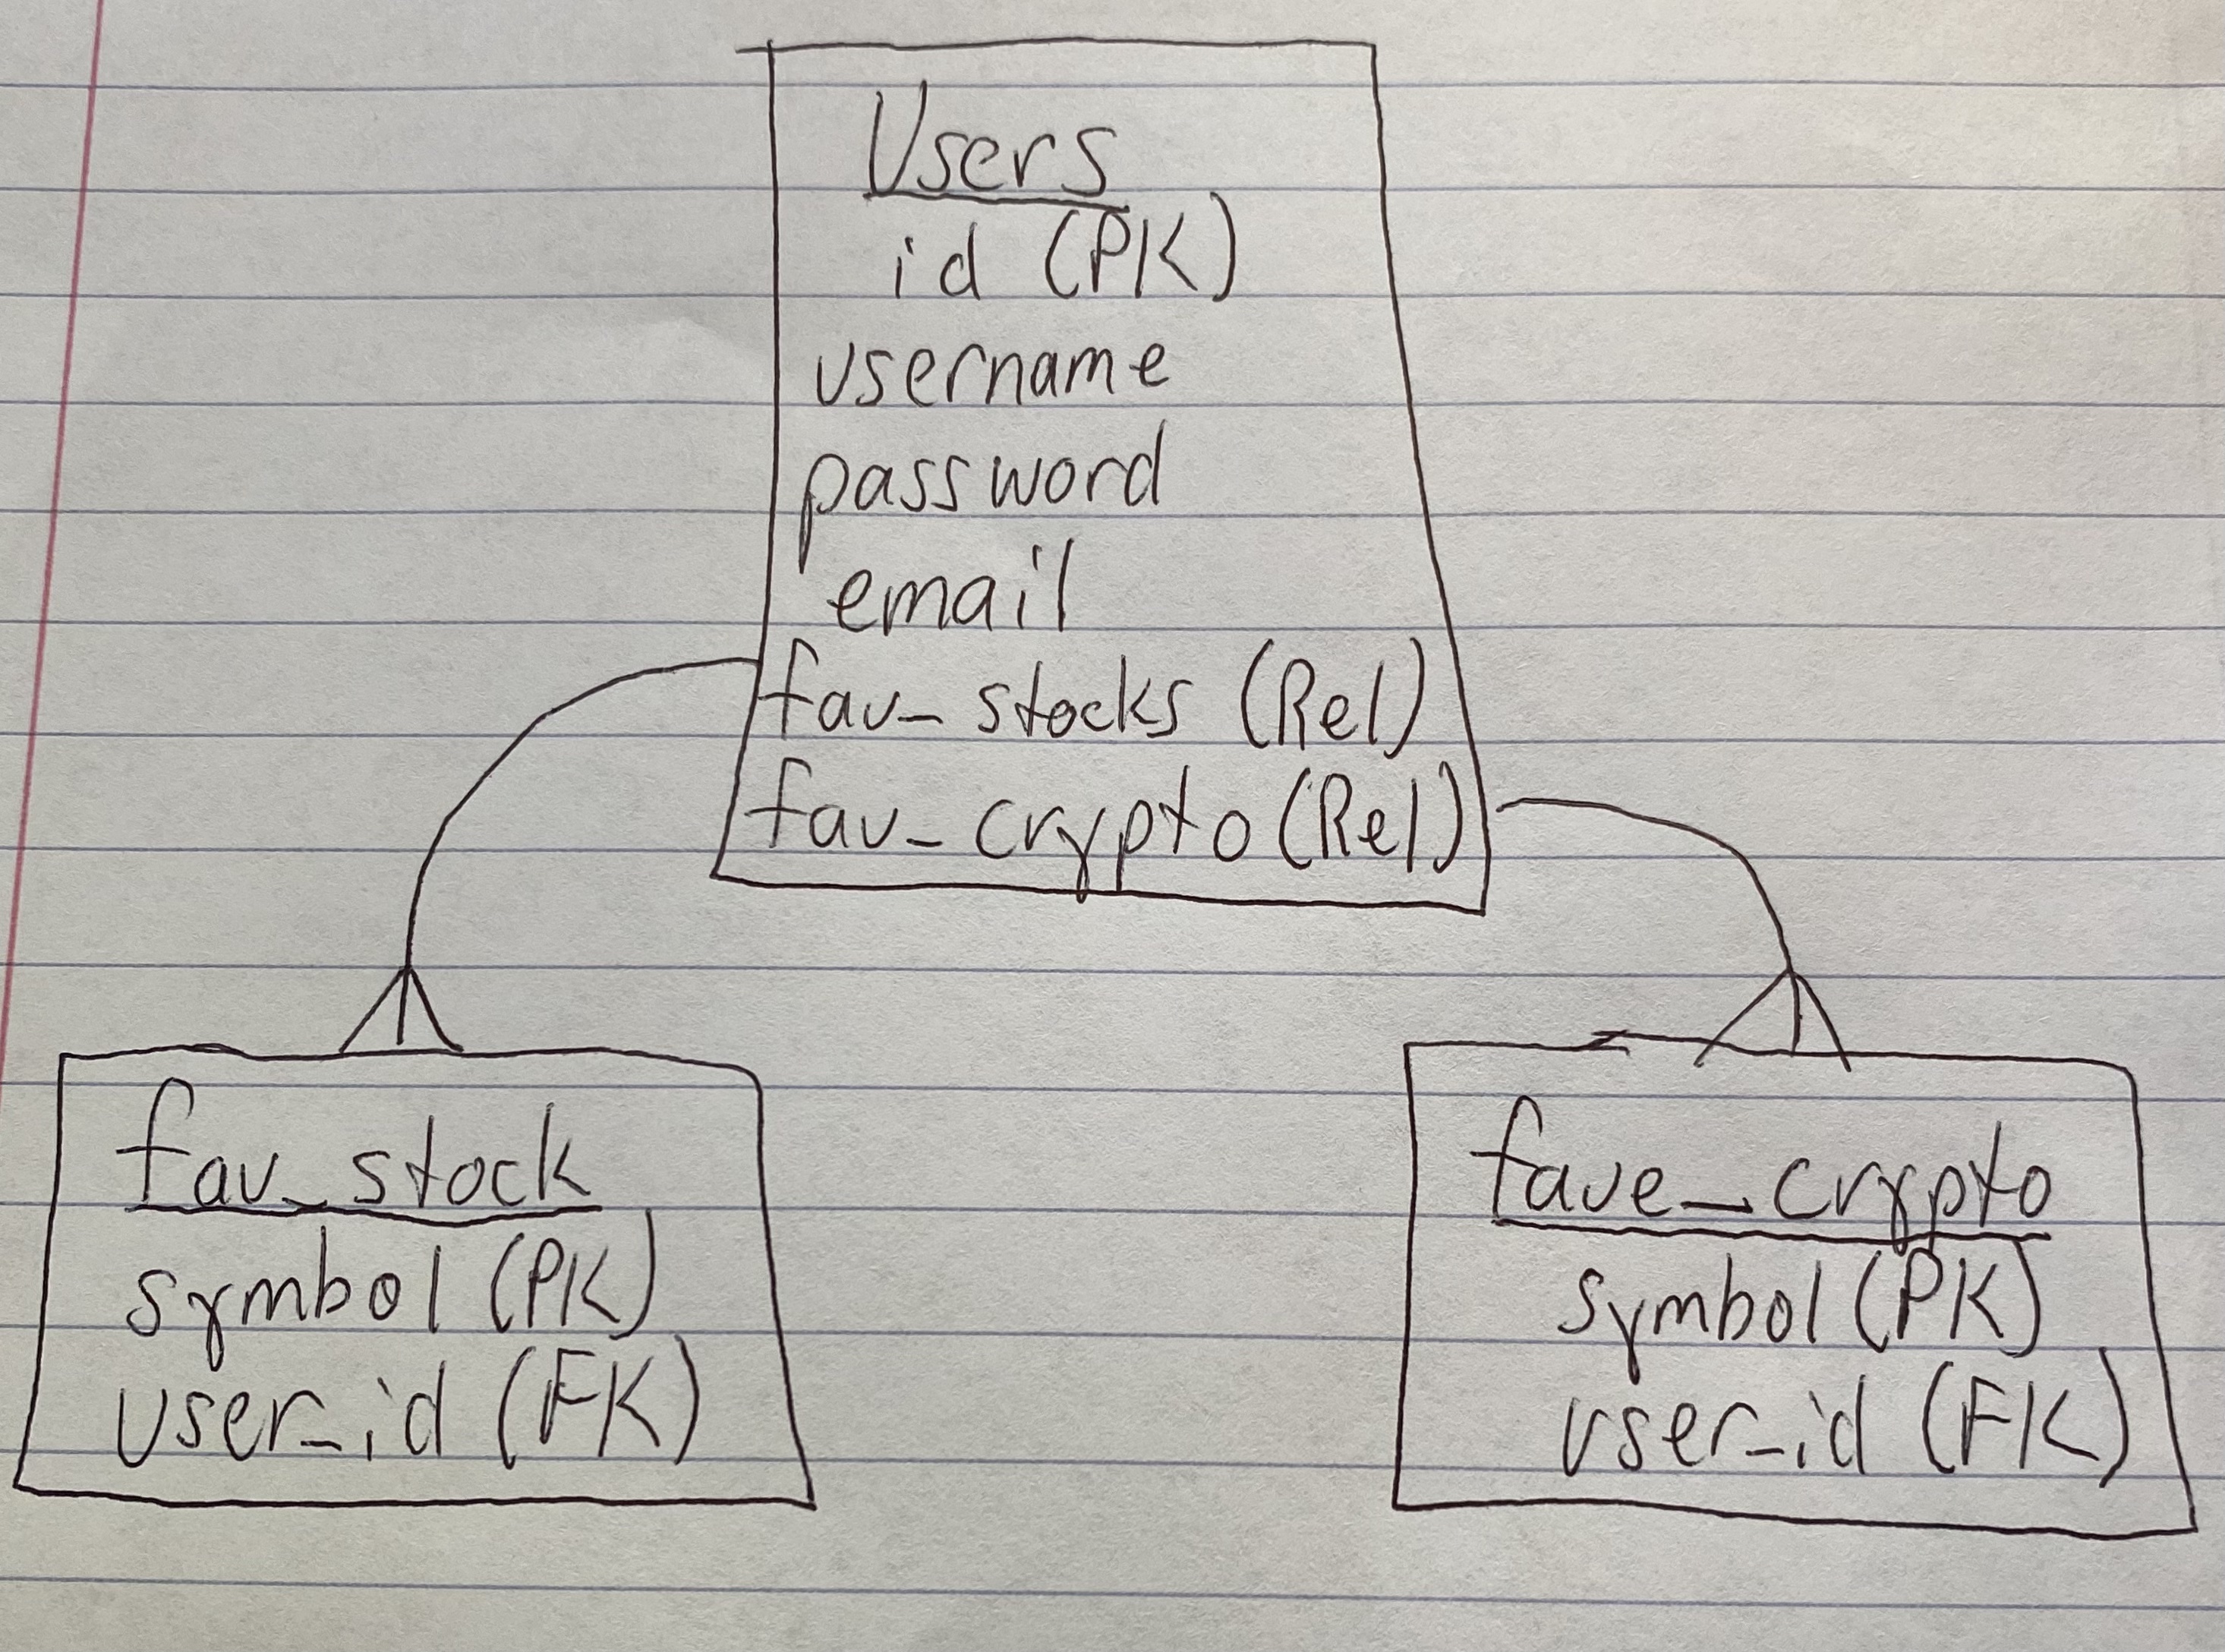 Users
id (PK)
username
password
email
fav_stocks (Rel)
fav_crypto (Rel)
fav_stock
symbol (PK)
user_id (FK)
fave_crypto
symbol (PK)
user_id (FK)